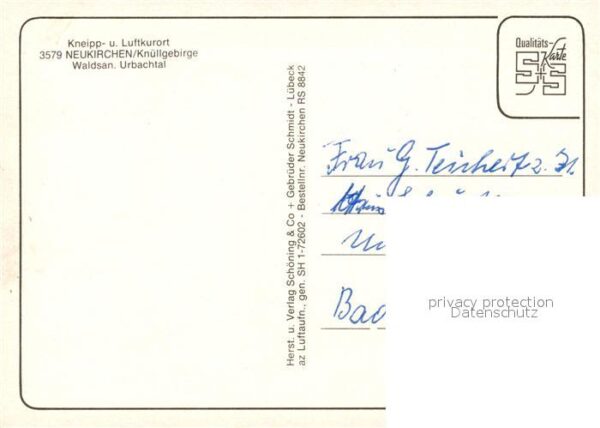 Kneipp- u. Luftkurort
3579 NEUKIRCHEN/Knüllgebirge
Waldsan. Urbachtal
Herst. u. Verlag Schöning & Co + Gebrüder Schmidt - Lübeck
az Luftaufn., gen. SH 1-72602 - Bestellnr. Neukirchen RS 8842
Qualitäts-
Karte
S+S
Frau G.
Bad
privacy protection
Datenschutz